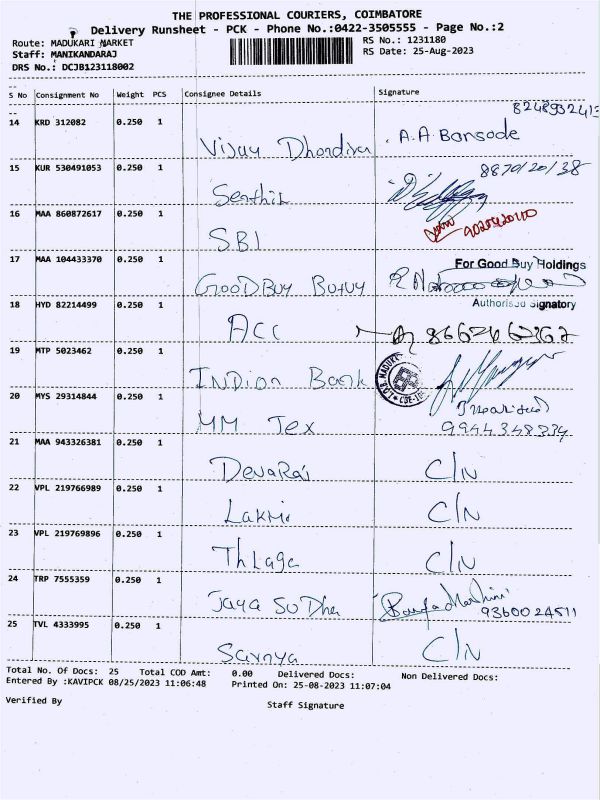 THE PROFESSIONAL COURIERS, COIMBATORE
Delivery Runsheet - PCK - Phone No.:0422-3505555 - Page No.:2
Route: MADUKARI MARKET
RS No.: 1231180
Staff: MANIKANDARAJ
RS Date: 25-Aug-2023
DRS No.: DCJB123118002
S No Consignment No Weight PCS Consignee Details Signature
14 KRD 312082 0.250 1 Vijay A.A Bansode
15 KUR 530491053 0.250 1 Senthil 8870120138
16 MAA 860872617 0.250 1 SBI
17 MAA 104433370 0.250 1 GOODBUY For Good Buy Holdings
Authorised Signatory
18 HYD 82214499 0.250 1 ACC
19 MTP 5023462 0.250 1 INDian Bank
20 MYS 29314844 0.250 1 MM Tex 9944348334
21 MAA 943326381 0.250 1 DevaRaj C/N
22 VPL 219766989 0.250 1 Lakmi C/N
23 VPL 219769896 0.250 1 Thlaga C/N
24 TRP 7555359 0.250 1 Jaya SuDha 9360024511
25 TVL 4333995 0.250 1 Sarnya C/N
Total No. Of Docs: 25 Total COD Amt: 0.00 Delivered Docs: Non Delivered Docs:
Entered By :KAVIPCK 08/25/2023 11:06:48 Printed On: 25-08-2023 11:07:04
Verified By
Staff Signature